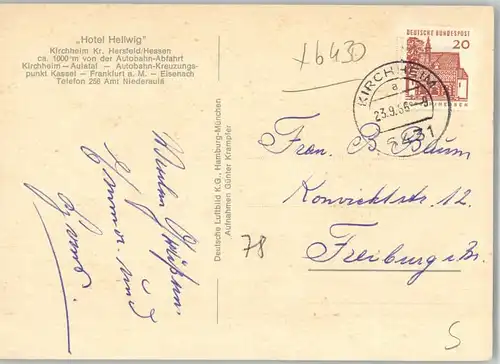 „Hotel Hellwig"
Kirchheim Kr. Hersfeld/Hessen
ca. 1000 m von der Autobahn-Abfahrt
Kirchheim—Aulatal — Autobahn-Kreuzungs-
punkt Kassel — Frankfurt a. M. — Eisenach
Telefon 258 Amt Niederaula
x6430
DEUTSCHE BUNDESPOST
20
KIRCHHEIM
a
23.9.66
6431
Deutsche Luftbild K.G., Hamburg-München
Aufnahmen Günter Krampfer
Frau B. Blum
Konviktstr. 12
Freiburg i. Br.
78
S